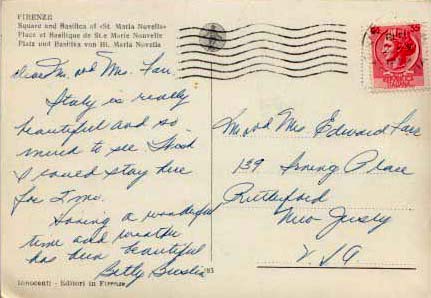 FIRENZE
Square and Basilica of «St. Maria Novella»
Place et Basilique de St.e Marie Nouvelle
Platz und Basilika von Hl. Maria Novella
Dear M. and Mrs. Farr.
Italy is really
beautiful and so
much to see. Wish
I could stay here
for 2 mo.
Having a wonderful
time and weather
has been beautiful
Betty
Mr and Mrs Edward Farr
139 Irving Place
Rutherford
New Jersey
U.S.A
Innocenti - Editori in Firenze